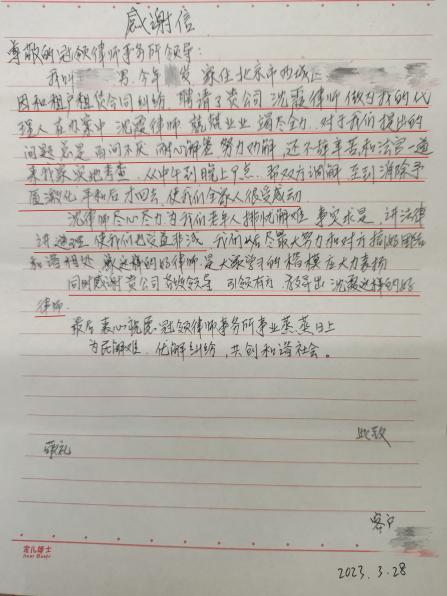 感谢信
尊敬的冠领律师事务所领导:
我叫 男.今年 岁 家住北京市西城区
因和租户租赁合同纠纷.聘请了贵公司沈霞律师做为我的代
理人在办案中沈霞律师兢兢业业 竭尽全力.对于我们提出的
问题总是百问不厌 耐心解答 努力功解,还不辞辛苦和法官一道
来我家实地考查,从中午到晚上9点.帮双方调解 至到消除矛
盾激化 平和后才回去.使我们全家人很受感动
沈律师尽心尽力为我们老年人排忧解难 事实求是.讲法律
讲道理.使我们收益非浅 我们以后尽最大努力和对方搞好团结
和谐相处 象这样的好律师是大家学习的楷模应大力表扬
同时感谢贵公司首领导 引领有力.教导出沈霞这样的好
律师.
最后衷心祝愿.冠领律师事务所事业蒸蒸日上
为民解难.化解纠纷,共创和谐社会。
此致
敬礼
客户
2023.3.28